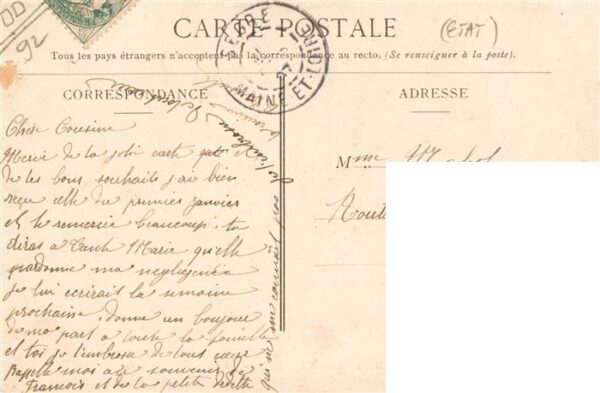 DD
92
CARTE POSTALE
(ETAT)
Tous les pays étrangers n'acceptent pas la correspondance au recto. (Se renseigner à la poste).
MAINE-ET-LOIRE
07
CORRESPONDANCE
ADRESSE
Chère Cousine
Merci de ta joli carte et
de tes bons souhaits j'ai bien
reçu celle du premier janvier
et te remercie beaucoup. tu
diras a Tante Marie qu'elle
pardonne ma negligence
je lui ecrirait la semaine
prochaine. donne un bonjour
de ma part a toute la famille
et toi je t'embrasse de tout cœur
Rappelle moi au souvenir de
Francois et de la petite
qui ne me connait pas
Mme
Route